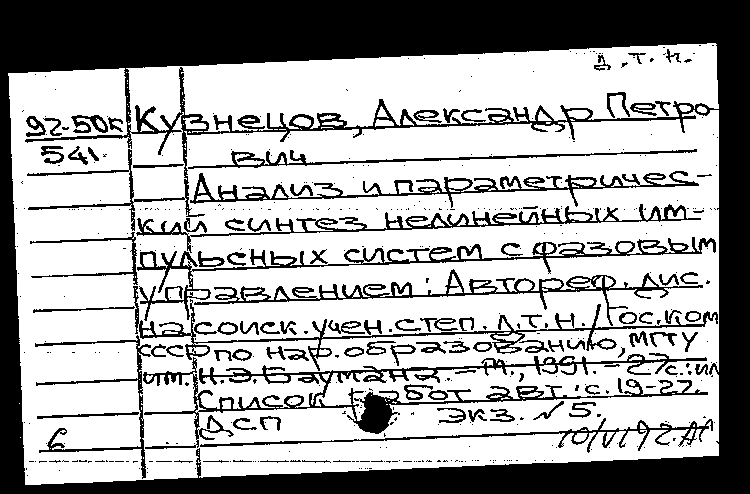 Д.Т.Н.
92-50к Кузнецов, Александр Петро
541 вич
Анализ и параметричес-
кий синтез нелинейных им-
пульсных систем с фазовым
управлением: Автореф. дис.
на соиск. учен. степ. д.т.н. / Гос. ком
СССР по нар. образованию, МГТУ
им. Н.Э. Баумана. - М., 1991. - 27с.: ил
Список работ авт.: с. 19-27.
ДСП экз. №5.
6 10/VI 92